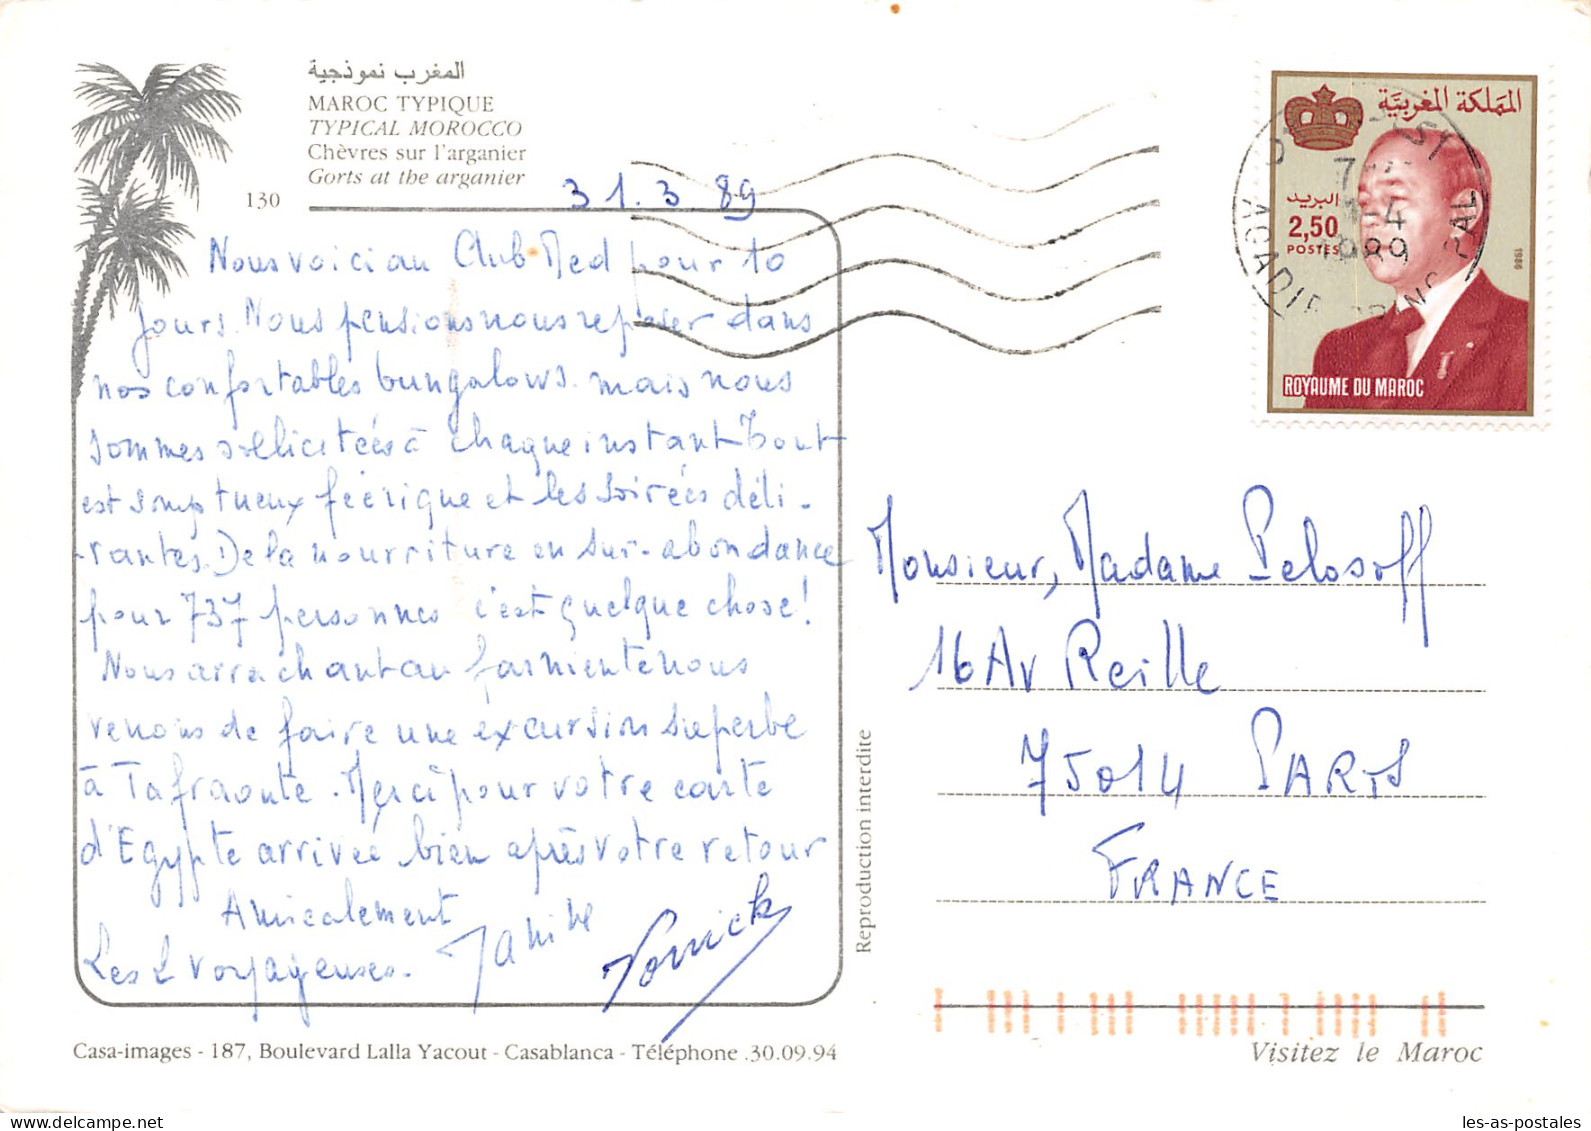 المغرب نموذجية
MAROC TYPIQUE
TYPICAL MOROCCO
Chèvres sur l'arganier
Gorts at the arganier
130
31.3.89
Nous voici au Club Med pour 10
jours. Nous pensions nous reposer dans
nos confortables bungalows. mais nous
sommes sollicitées à chaque instant Tout
est somptueux féérique et les soirées déli-
-rantes. De la nourriture en sur-abondance
pour 737 personnes c'est quelque chose!
Nous arrachant au farniente nous
venons de faire une excursion superbe
à Tafraoute. Merci pour votre carte
d'Egypte arrivée bien après votre retour
Amicalement
Les 2 voyageuses.
Janine
Casa-images - 187, Boulevard Lalla Yacout - Casablanca - Téléphone .30.09.94
Reproduction interdite
المملكة المغربية
البريد
2,50
POSTES
1986
ROYAUME DU MAROC
-4
1989
AGADIR
Monsieur, Madame Pelosoff
16 Av Reille
75014 PARIS
FRANCE
Visitez le Maroc
les-as-postales